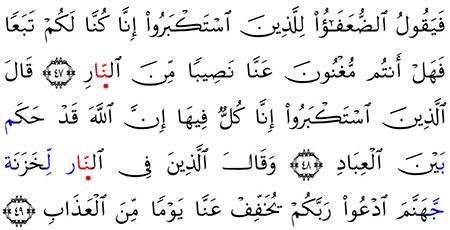 فَيَقُولُ ٱلضُّعَفَـٰٓؤُا۟ لِلَّذِينَ ٱسْتَكْبَرُوٓا۟ إِنَّا كُنَّا لَكُمْ تَبَعًا
فَهَلْ أَنتُم مُّغْنُونَ عَنَّا نَصِيبًا مِّنَ ٱلنَّارِ ﴿٤٧﴾ قَالَ
ٱلَّذِينَ ٱسْتَكْبَرُوٓا۟ إِنَّا كُلٌّ فِيهَآ إِنَّ ٱللَّهَ قَدْ حَكَم
بَيْنَ ٱلْعِبَادِ ﴿٤٨﴾ وَقَالَ ٱلَّذِينَ فِى ٱلنَّار لِّخَزَنَة
جَّهَنَّمَ ٱدْعُوا۟ رَبَّكُمْ يُخَفِّفْ عَنَّا يَوْمًا مِّنَ ٱلْعَذَابِ ﴿٤٩﴾